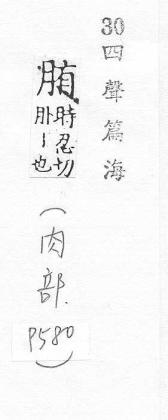 30 四聲篇海
時忍切
丨也
(肉部 P580)